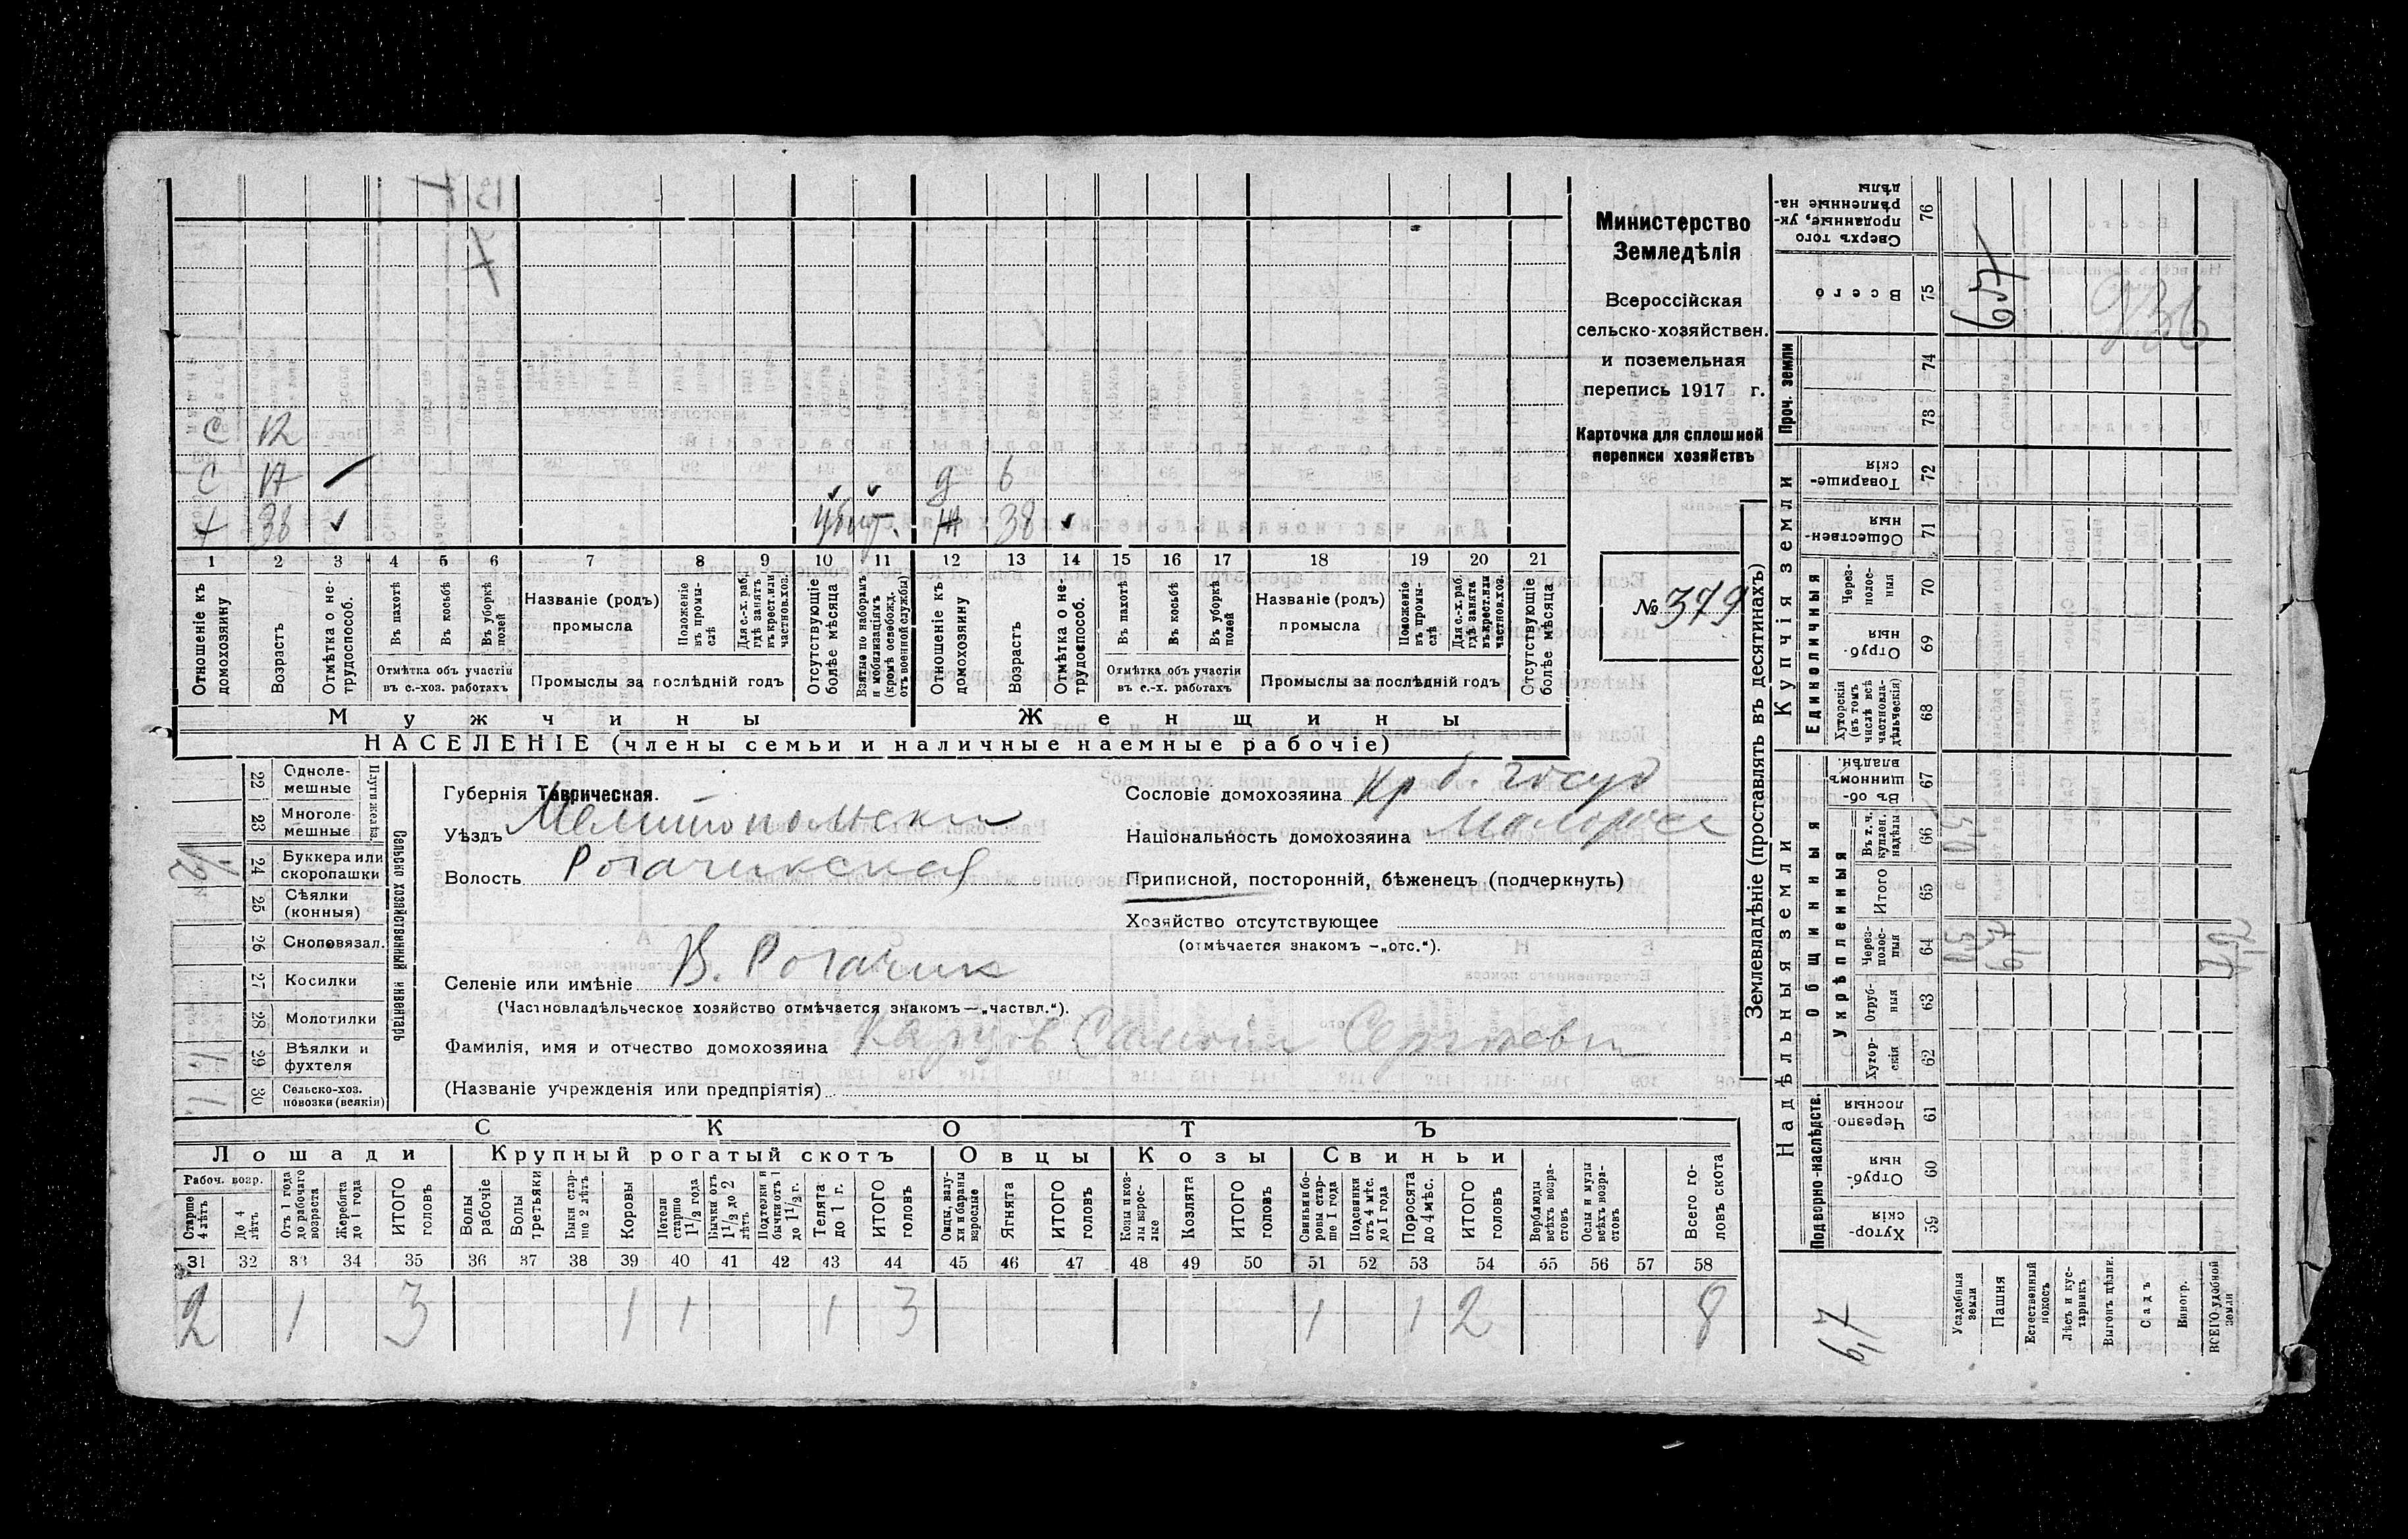 С 12
С 17 д 6
х 38 убит. ж 38
1 2 3 4 5 6 7 8 9 10 11 12 13 14 15 16 17 18 19 20 21
Отношеніе къ домохозяину
Возрастъ
Отмѣтка о не-трудоспособ.
Въ пахотѣ
Въ косьбѣ
Въ уборкѣ полей
Отмѣтка объ участіи въ с.-хоз. работахъ
Названіе (родъ) промысла
Положеніе въ промы-слѣ
Для с.-х. раб. гдѣ занятъ въ крест. или частнов. хоз.
Промыслы за послѣдній годъ
Отсутствующіе болѣе мѣсяца
Взятые по наборамъ и мобилизаціямъ (кромѣ освобожд. отъ военной службы)
Отношеніе къ домохозяину
Возрастъ
Отмѣтка о не-трудоспособ.
Въ пахотѣ
Въ косьбѣ
Въ уборкѣ полей
Отмѣтка объ участіи въ с.-х. работахъ
Названіе (родъ) промысла
Положеніе въ промы-слѣ
Для с.-х. раб. гдѣ занята въ крест. или частнов. хоз.
Промыслы за послѣдній годъ
Отсутствующіе болѣе мѣсяца
Мужчины Женщины
НАСЕЛЕНІЕ (члены семьи и наличные наемные рабочіе)
Министерство
Земледѣлія
Всероссійская
сельско-хозяйствен.
и поземельная
перепись 1917 г.
Карточка для сплошной
переписи хозяйствъ
№ 379
22 Одноле-мешные
23 Многоле-мешные
24 Буккера или скоропашки
25 Сѣялки (конныя)
26 Сноповязал.
27 Косилки
28 Молотилки
29 Вѣялки и фухтеля 1
30 Сельско-хоз. повозки (всякія) 1
Сельско хозяйственный инвентарь
Губернія Таврическая.
Уѣздъ Мелитопольски
Волость Рогачикская
Селеніе или имѣніе В. Рогачик
(Частновладѣльческое хозяйство отмѣчается знакомъ—„частвл.“).
Фамилія, имя и отчество домохозяина
(Названіе учрежденія или предпріятія)
Сословіе домохозяина Кр б. госуд
Національность домохозяина Малорос
Приписной, посторонній, бѣженецъ (подчеркнуть)
Хозяйство отсутствующее
(отмѣчается знакомъ —„отс.“).
СКОТЪ
Лошади Крупный рогатый скотъ Овцы Козы Свиньи
Рабоч. возр.
Старше 4 лѣтъ
До 4 лѣтъ
Отъ 1 года до рабочаго возраста
Жеребята до 1 года
ИТОГО головъ
Волы рабочіе
Волы третьяки
Быки стар-ше 2 лѣтъ
Коровы
Нетели старше 1½ года
Бычки отъ 1½ до 2 лѣтъ
Подтелуки и бычки отъ 1 до 1½ г.
Телята до 1 г.
ИТОГО головъ
Овцы, валу-хи и бараны взрослые
Ягнята
ИТОГО головъ
Козы и коз-лы взрос-лые
Козлята
ИТОГО головъ
Свиньи и бо-ровы стар-ше 1 года
Подсвинки отъ 4 мѣс. до 1 года
Поросята до 4 мѣс.
ИТОГО головъ
Верблюды всѣхъ возра-стовъ
Ослы и мулы всѣхъ возра-стовъ
Всего го-ловъ скота
31 32 33 34 35 36 37 38 39 40 41 42 43 44 45 46 47 48 49 50 51 52 53 54 55 56 57 58
2 1 3 1 1 1 3 1 1 2 8
Землевладѣніе (проставлять въ десятинахъ)
Надѣльныя земли
Купчія земли
Проч. земли
Подворно-наслѣдств.
Общинныя
Укрѣпленныя
Единоличныя
Хутор-скія 59
Отруб-ныя 60
Черезпо-лосныя 61
Хутор-скія 62
Отруб-ныя 63
Через-полос-ныя 64
Итого 65
Въ т. ч. куплен. надѣлы 66
Въ об-щинномъ владѣн. 67
Хуторскія (въ томъ числѣ всѣ частновла-дѣльческія) 68
Отруб-ныя 69
Через-полос-ныя 70
Обществен-ныя 71
Товарище-скія 72
73
74
Всего 75
Сверхъ того проданные, ук-рѣпленные на-дѣлы 76
Усадебныя земли
Пашня
Естественный покосъ
Лѣсъ и кус-тарникъ
Выгонъ цѣлик.
Садъ
Виногр.
ВСЕГО удобной земли